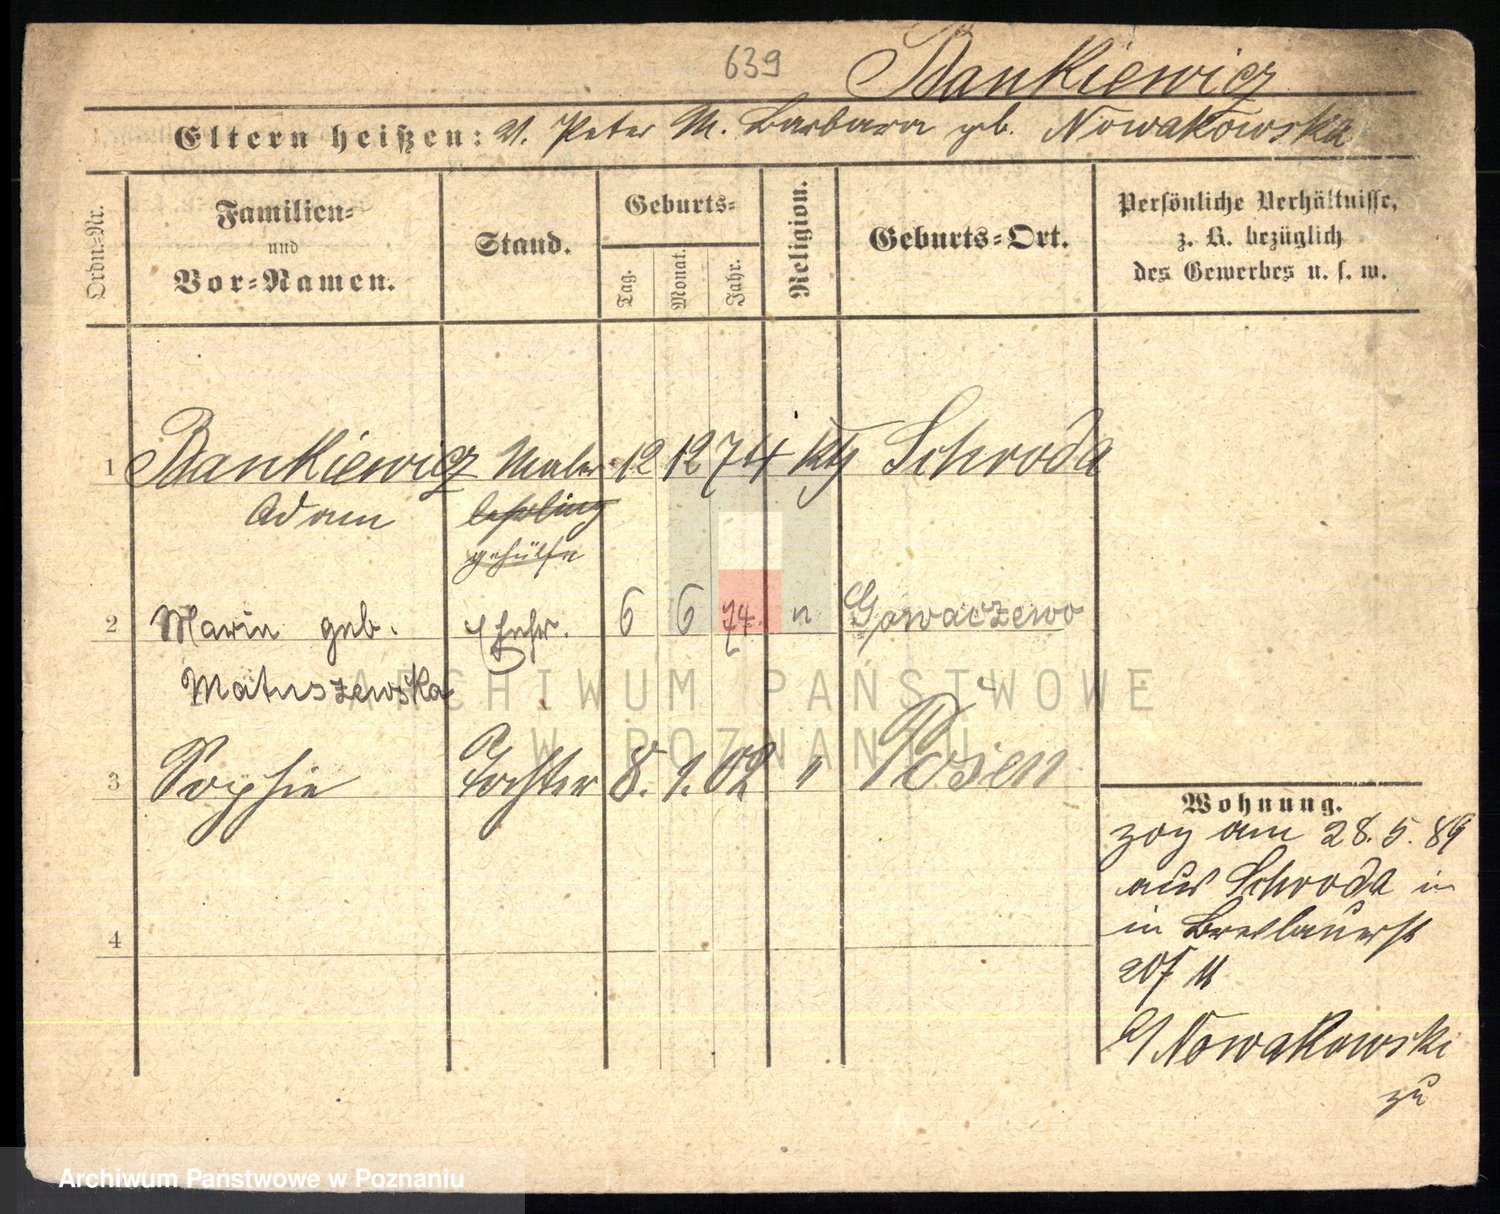 639
Bankiewicz
Eltern heißen: V. Peter M. Barbara gb. Nowakowska
Ordn=Nr.
Familien=
und
Vor=Namen.
Stand.
Geburts=
Tag.
Monat.
Jahr.
Religion.
Geburts=Ort.
Persönliche Verhältnisse,
z. B. bezüglich
des Gewerbes u. s. w.
1 Bankiewicz Maler 12 12 74 kth Schroda
Adam lehrling
gehülfe
2 Maria geb. Ehefr. 6 6 74. " Gowaczewo
Matuszewska
3 Sophie Tochter 8. 1. 02 " Posen
4
Wohnung.
zog am 28. 5. 89
aus Schroda in
in Breslauerst
20 II
b/Nowakowski
zu
ARCHIWUM PAŃSTWOWE
W POZNANIU
Archiwum Państwowe w Poznaniu